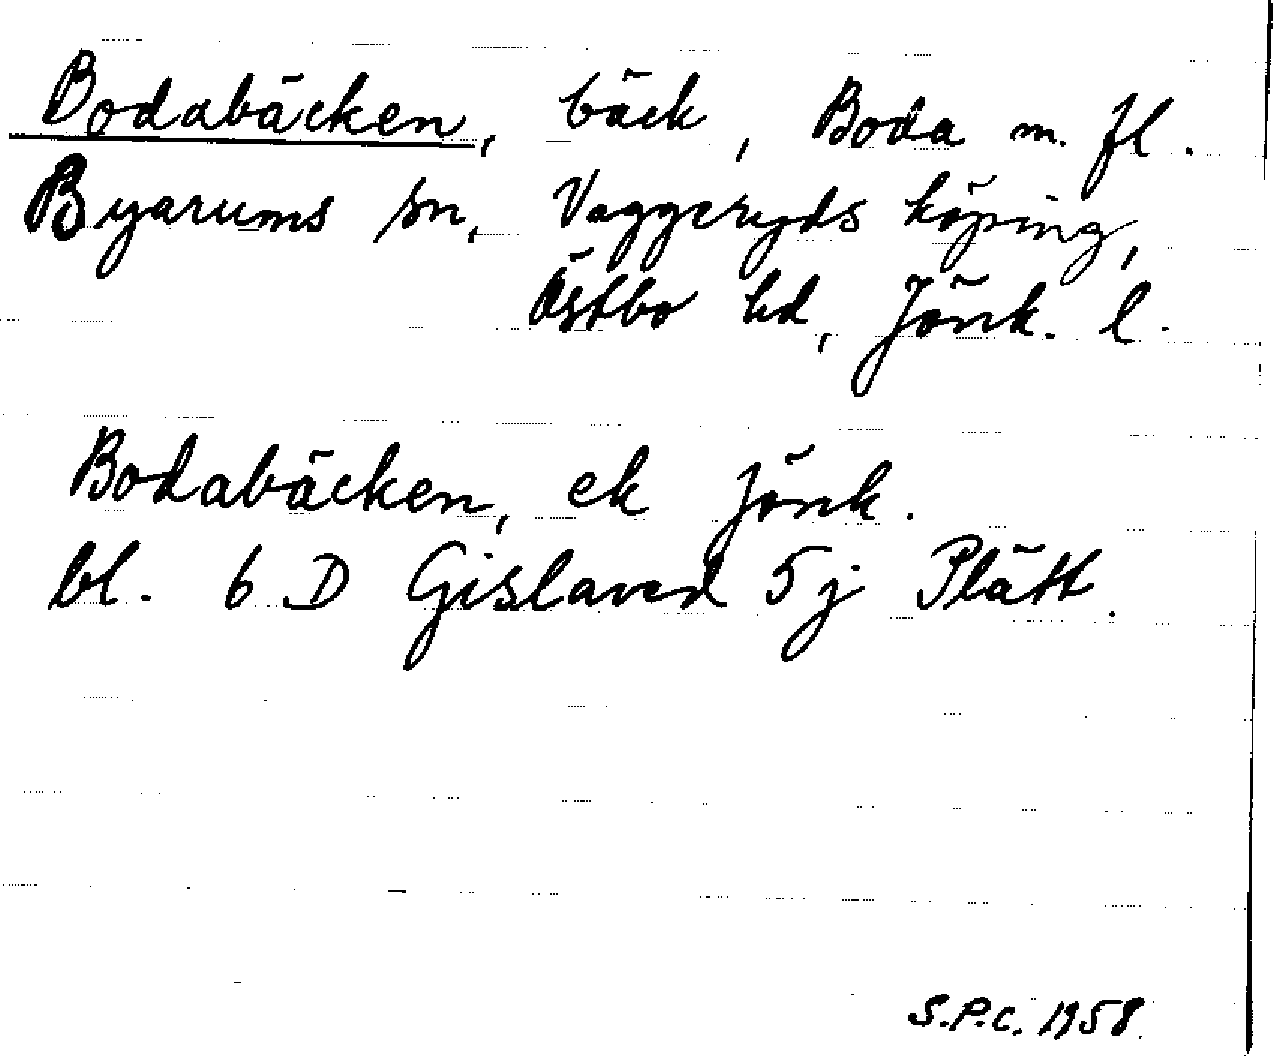 Bodabäcken, bäck, Boda m. fl.
Byarums sn, Vaggeryds köping,
Östbo hd, Jönk. l.
Bodabäcken, ek Jönk.
bl. 6 D Gislaved 5j Plått.
S.P.C. 1958.